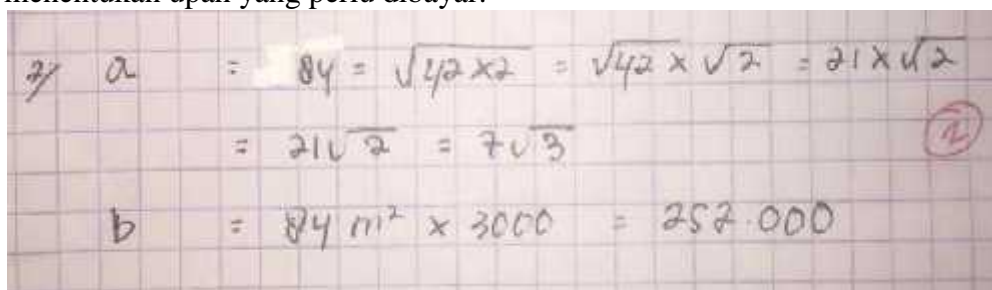 menentukan upah yang perlu dibayar.
2/ a = 84 = √42×2 = √42 × √2 = 21×√2
= 21√2 = 7√3
2
b = 84 m² × 3000 = 252.000